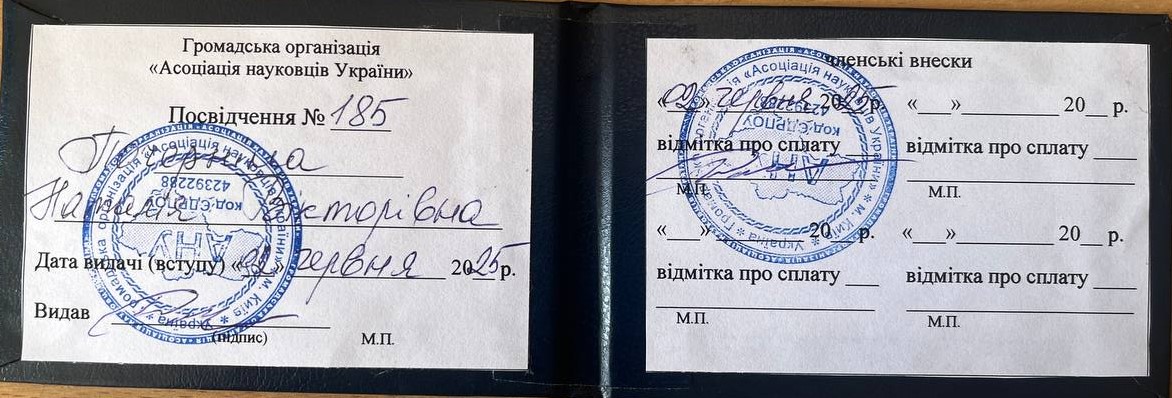 Громадська організація
«Асоціація науковців України»
Посвідчення № 185
Наталія Вікторівна
Дата видачі (вступу) «02» червня 2025 р.
Видав
(підпис) М.П.
Громадська організація «Асоціація науковців України» * М. Київ * Україна *
код ЄДРПОУ
42392288
АНУ
членські внески
«02» червня 2025 р.
відмітка про сплату
М.П.
«___» 20__ р.
відмітка про сплату ___
М.П.
«___» 20__ р.
відмітка про сплату ___
М.П.
«___» 20__ р.
відмітка про сплату ___
М.П.
Громадська організація «Асоціація науковців України» * М. Київ * Україна *
код ЄДРПОУ
42392288
АНУ